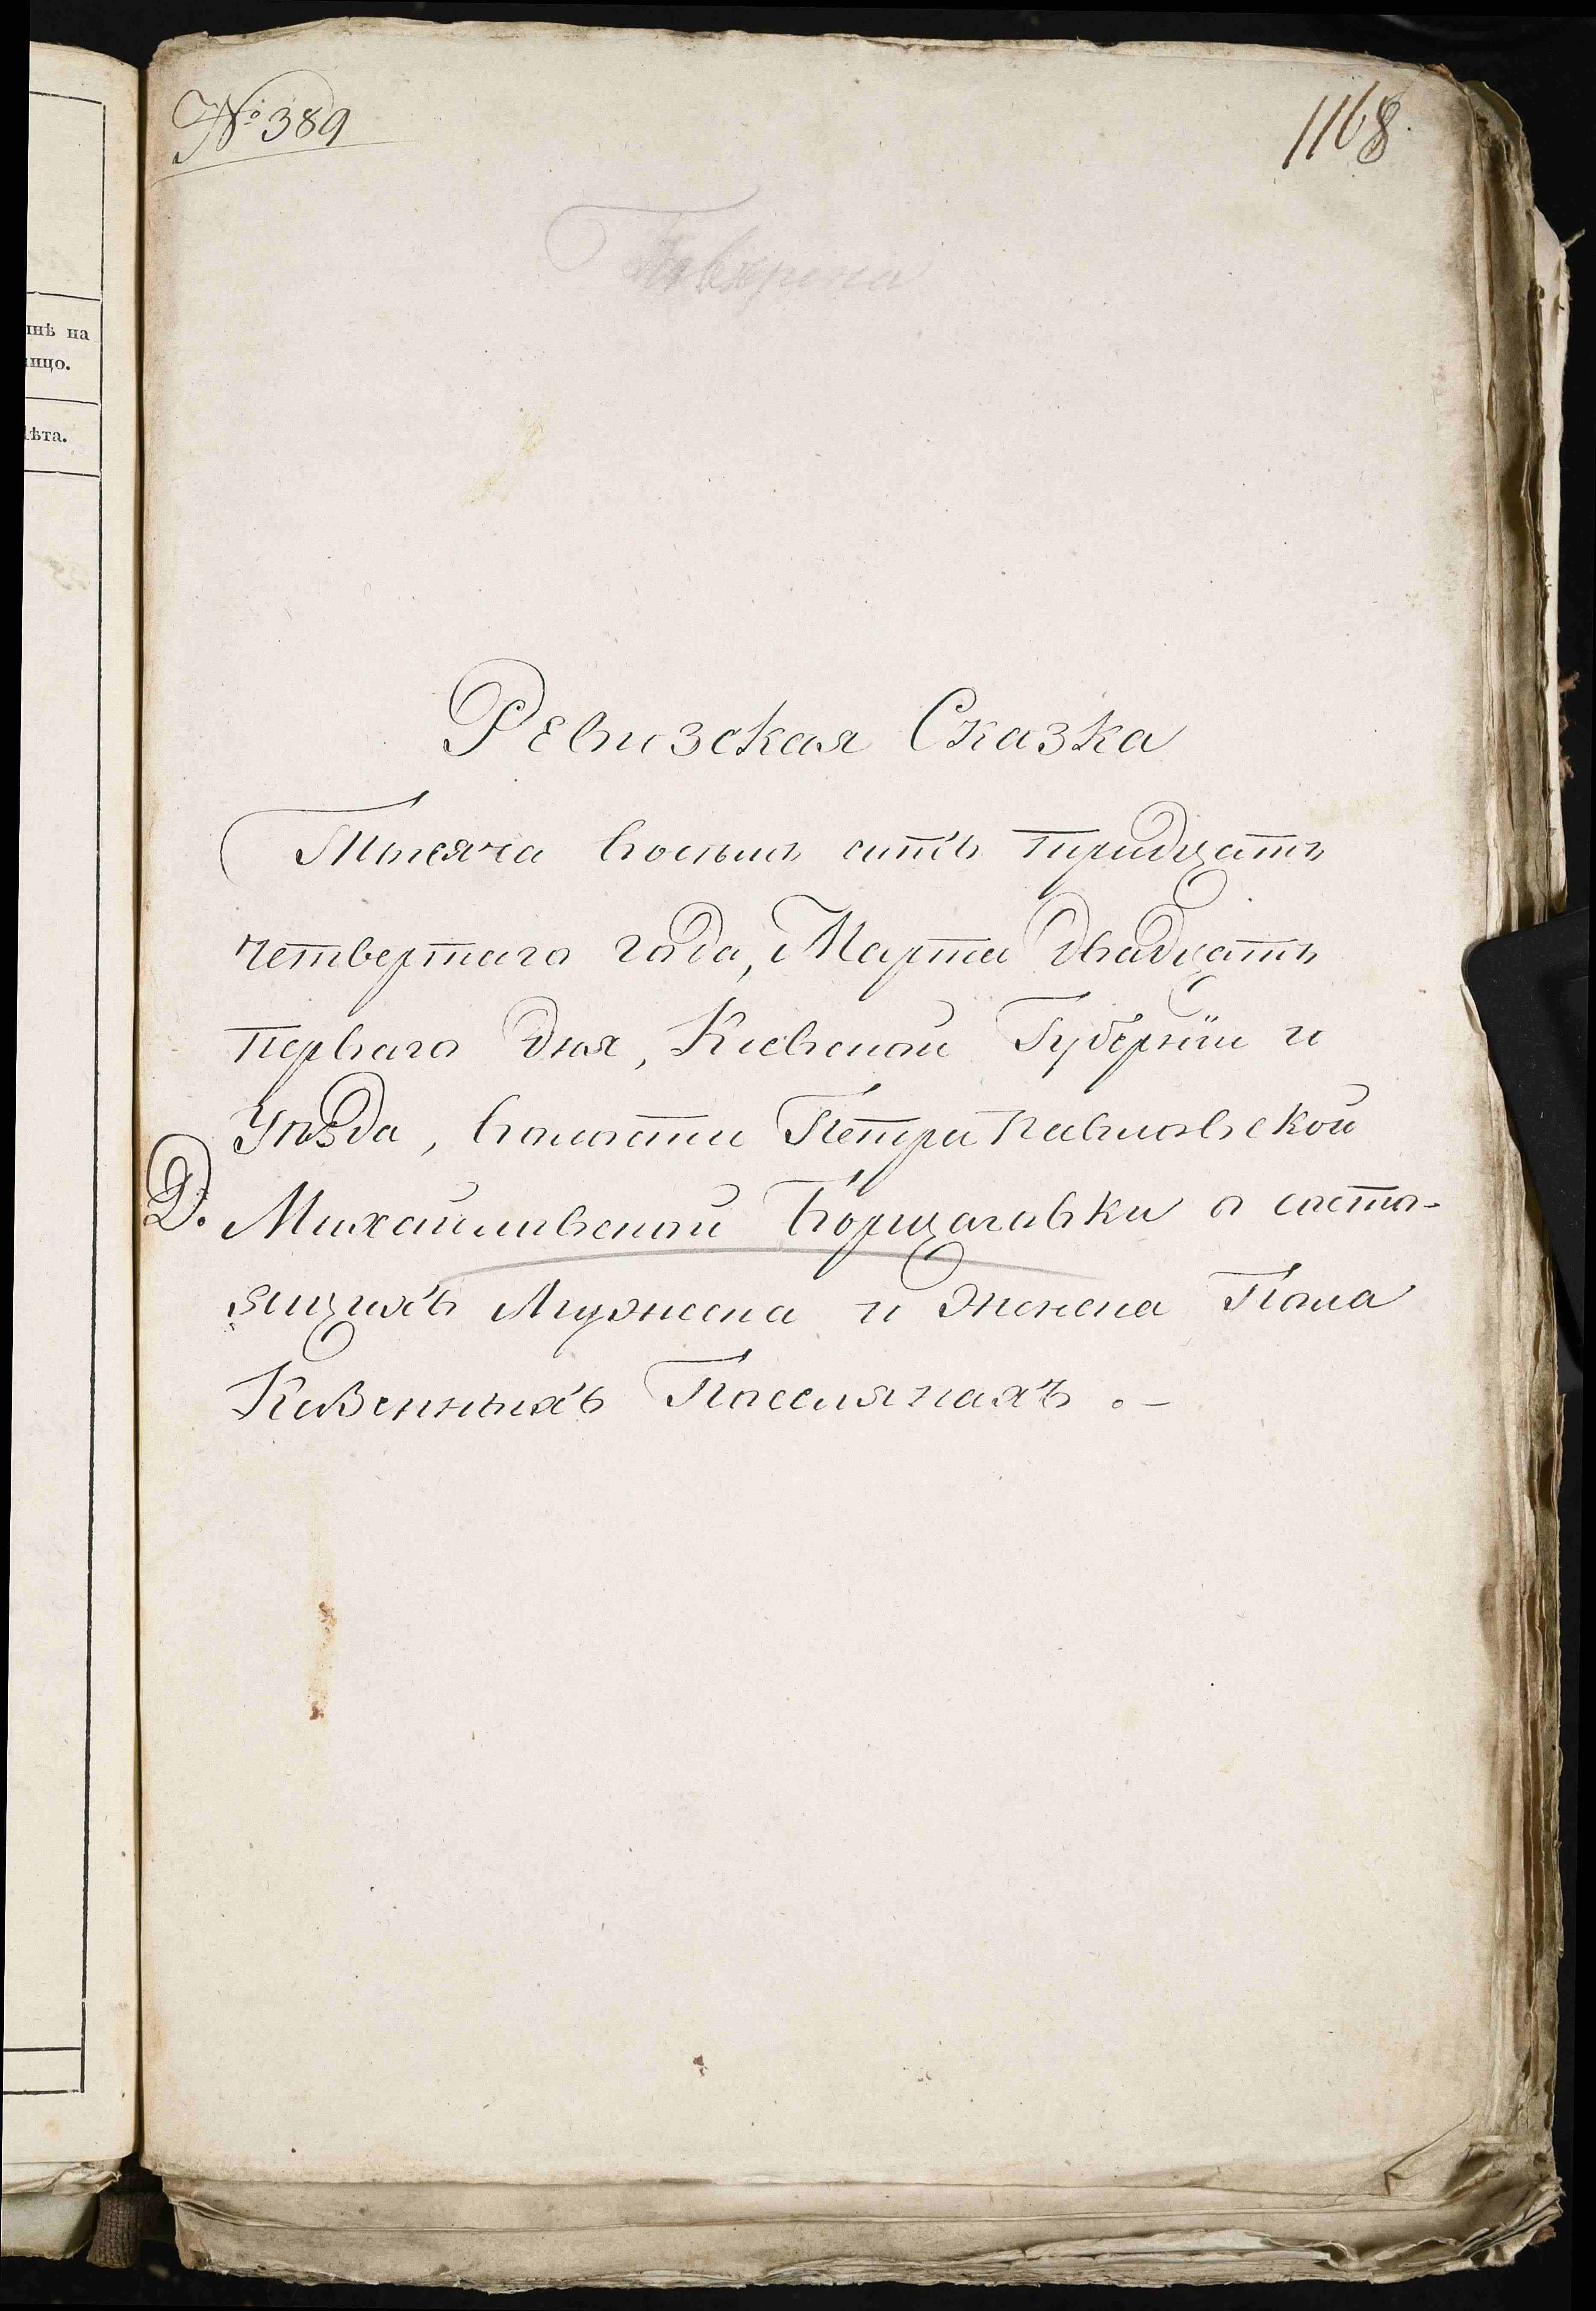 № 389
1168
Повѣрена
инѣ на
ицо.
лѣта.
Ревизская Сказка
Тысяча восемь сотъ тридцать
четвертаго года, Марта двадцать
перваго дня, Кіевской Губерніи и
Уѣзда, волости Петропавловской
Д. Михайловской Борщаговки о состо-
ящихъ Мужеска и Женска Пола
Казенныхъ Поселянахъ.–